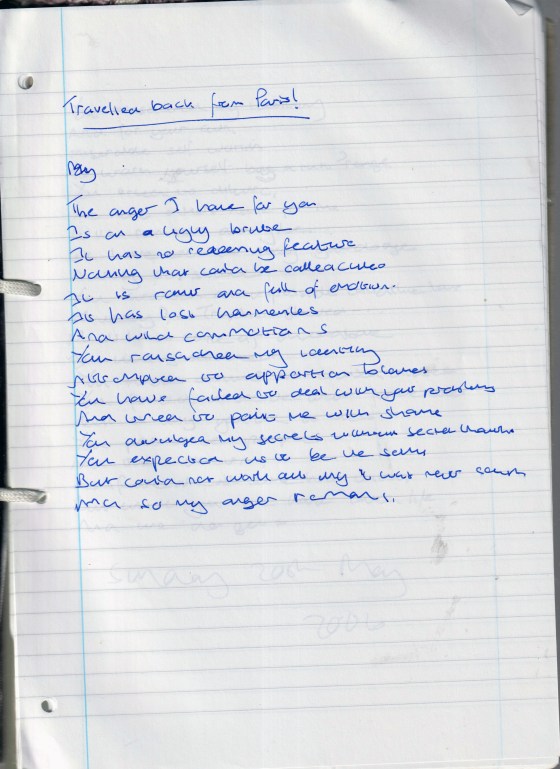 Travelled back from Paris!
The anger I have for you
Is an ugly bruise
It has no redeeming feature
Nothing that could be called
It is raw and full of emotion.
It has lost harmonies
And wild commotions
You ransacked my identity
Attempted to apportion blames
You have failed to deal with your problems
And tried to paint me with shame
You divulged my secrets without
You expected us to be
But could not work out why it was never
And so my anger remains.
Sunday 20th May
2006